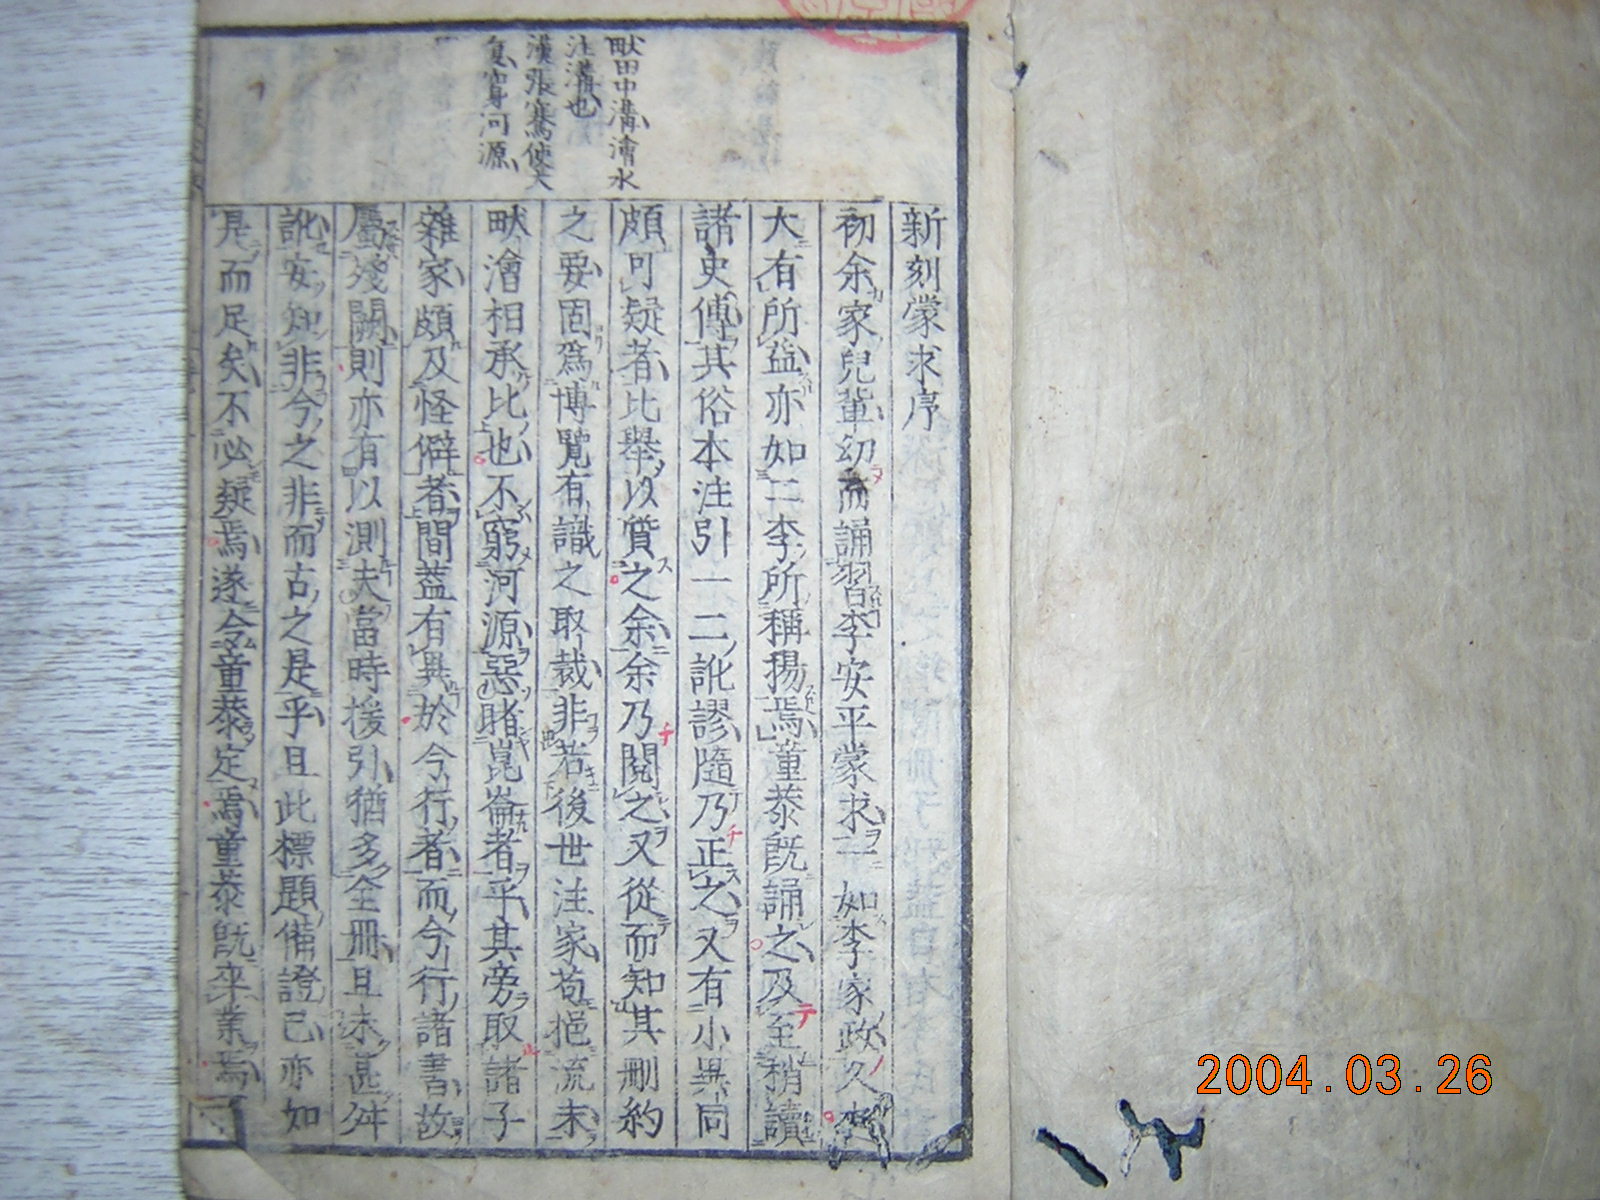 畎田中溝澮水
注溝也
漢張騫使大
夏窮河源
新刻蒙求序
初余家兒輩幼而誦習李安平蒙求一如李家政久
大有所益亦如二李所稱揚焉董㤗既誦之及至稍讀
諸史傳其俗本注引一二訛謬隨乃正之又有小異同
頗可疑者比舉以質之余余乃閱之又從而知其刪約
之要固爲博覽有識之取裁非若後世注家苟挹流末
畎澮相承比也不窮河源惡睹崑崙者乎其旁取諸子
雜家頗及怪僻者間蓋有異於今行者而今行諸書故
屬殘闕則亦有以測夫當時援引猶多全冊且未甚舛
訛安知非今之非而古之是乎且此標題備證已亦如
是而足矣不必疑焉遂令童㤗定焉童㤗既卒業焉
2004.03.26